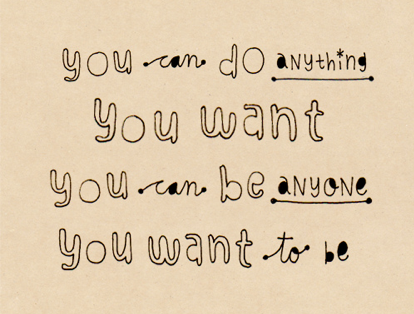 you can do anything
you want
you can be anyone
you want to be